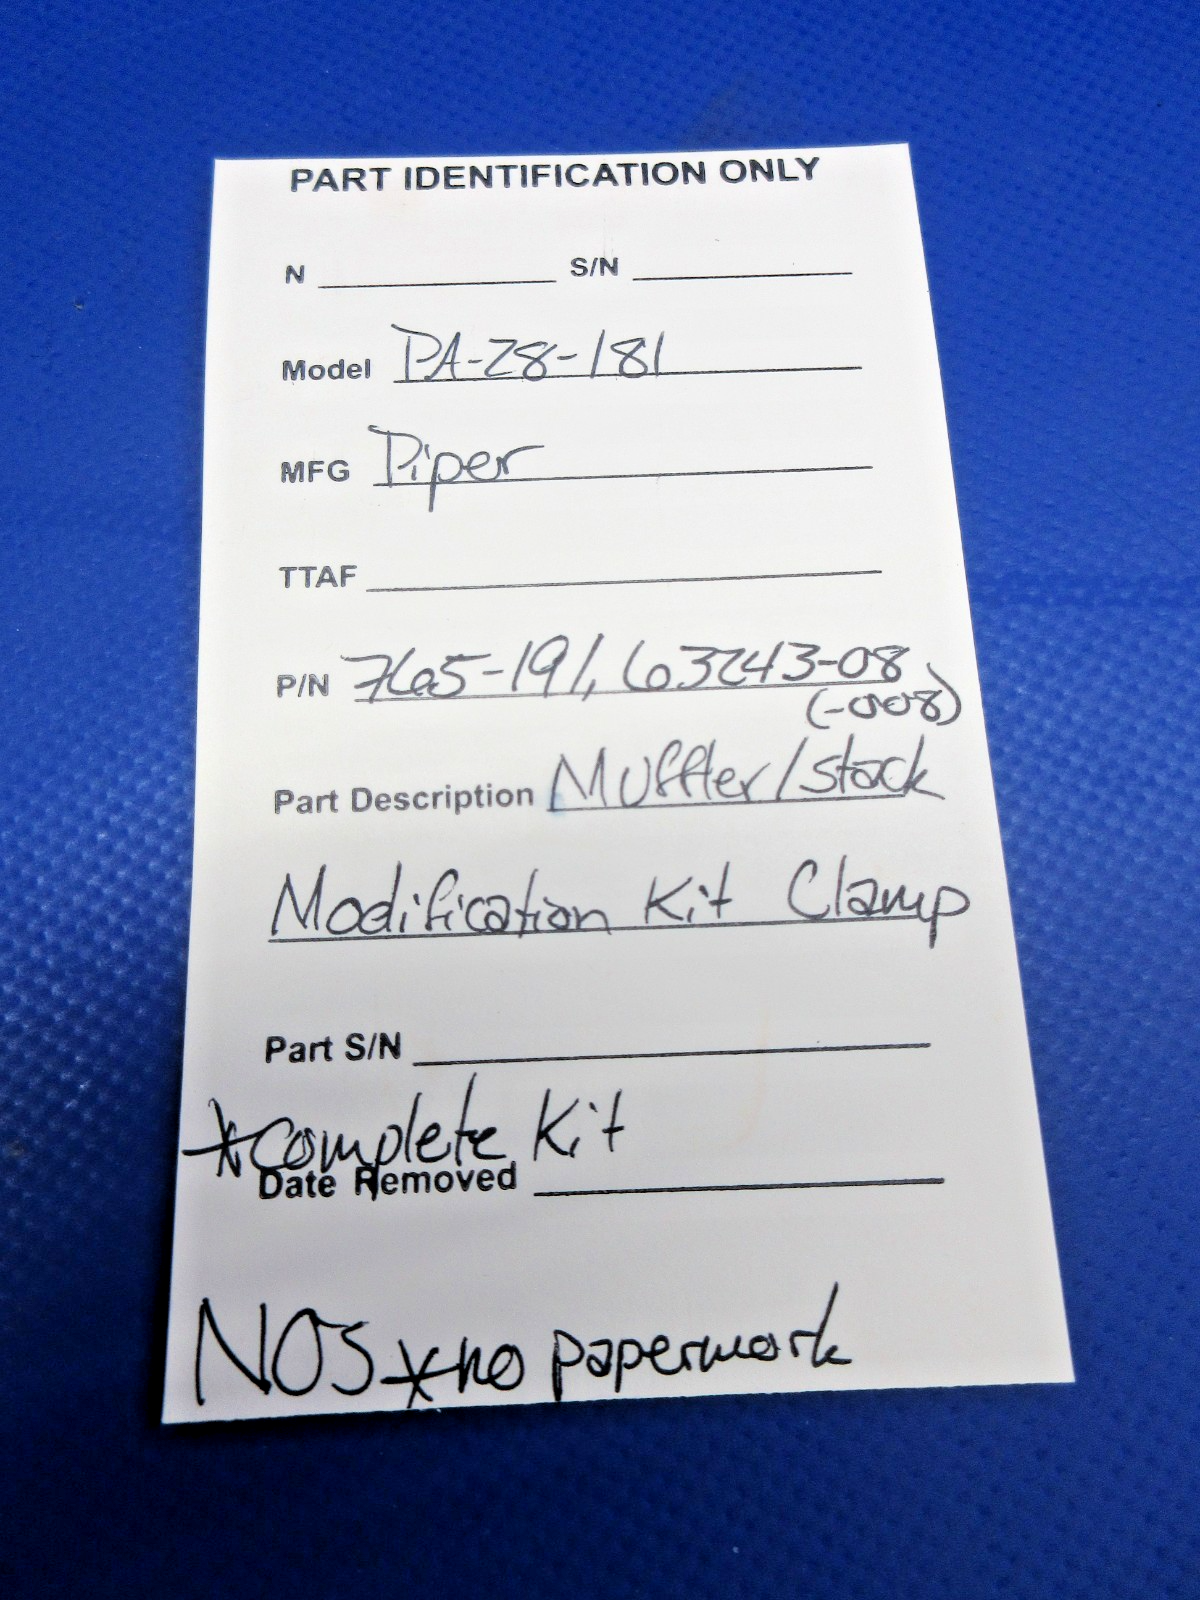 PART IDENTIFICATION ONLY
N S/N
Model PA-28-181
MFG Piper
TTAF
P/N 765-191, 63243-08
(-008)
Part Description Muffler/stack
Modification Kit Clamp
Part S/N
*complete Kit
Date Removed
NOS *no paperwork